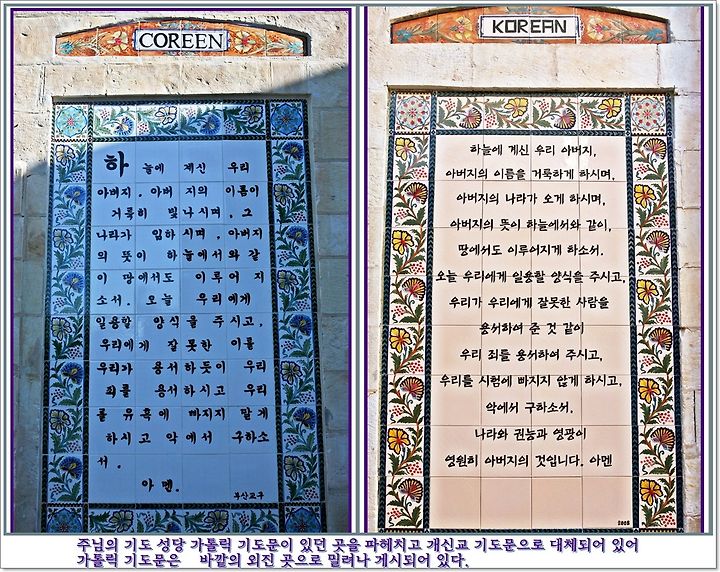 COREEN
하늘에 계신 우리
아버지, 아버지의 이름이
거룩히 빛나시며, 그
나라가 임하시며, 아버지
의 뜻이 하늘에서와 같
이 땅에서도 이루어 지
소서. 오늘 우리에게
일용할 양식을 주시고,
우리에게 잘못한 이를
우리가 용서하듯이 우리
죄를 용서하시고 우리
를 유혹에 빠지지 말게
하시고 악에서 구하소
서.
아멘.
부산교구
KOREAN
하늘에 계신 우리 아버지,
아버지의 이름을 거룩하게 하시며,
아버지의 나라가 오게 하시며,
아버지의 뜻이 하늘에서와 같이,
땅에서도 이루어지게 하소서.
오늘 우리에게 일용할 양식을 주시고,
우리가 우리에게 잘못한 사람을
용서하여 준 것 같이
우리 죄를 용서하여 주시고,
우리를 시험에 빠지지 않게 하시고,
악에서 구하소서.
나라와 권능과 영광이
영원히 아버지의 것입니다. 아멘
2008
주님의 기도 성당 가톨릭 기도문이 있던 곳을 파헤치고 개신교 기도문으로 대체되어 있어
가톨릭 기도문은 바깥의 외진 곳으로 밀려나 게시되어 있다.